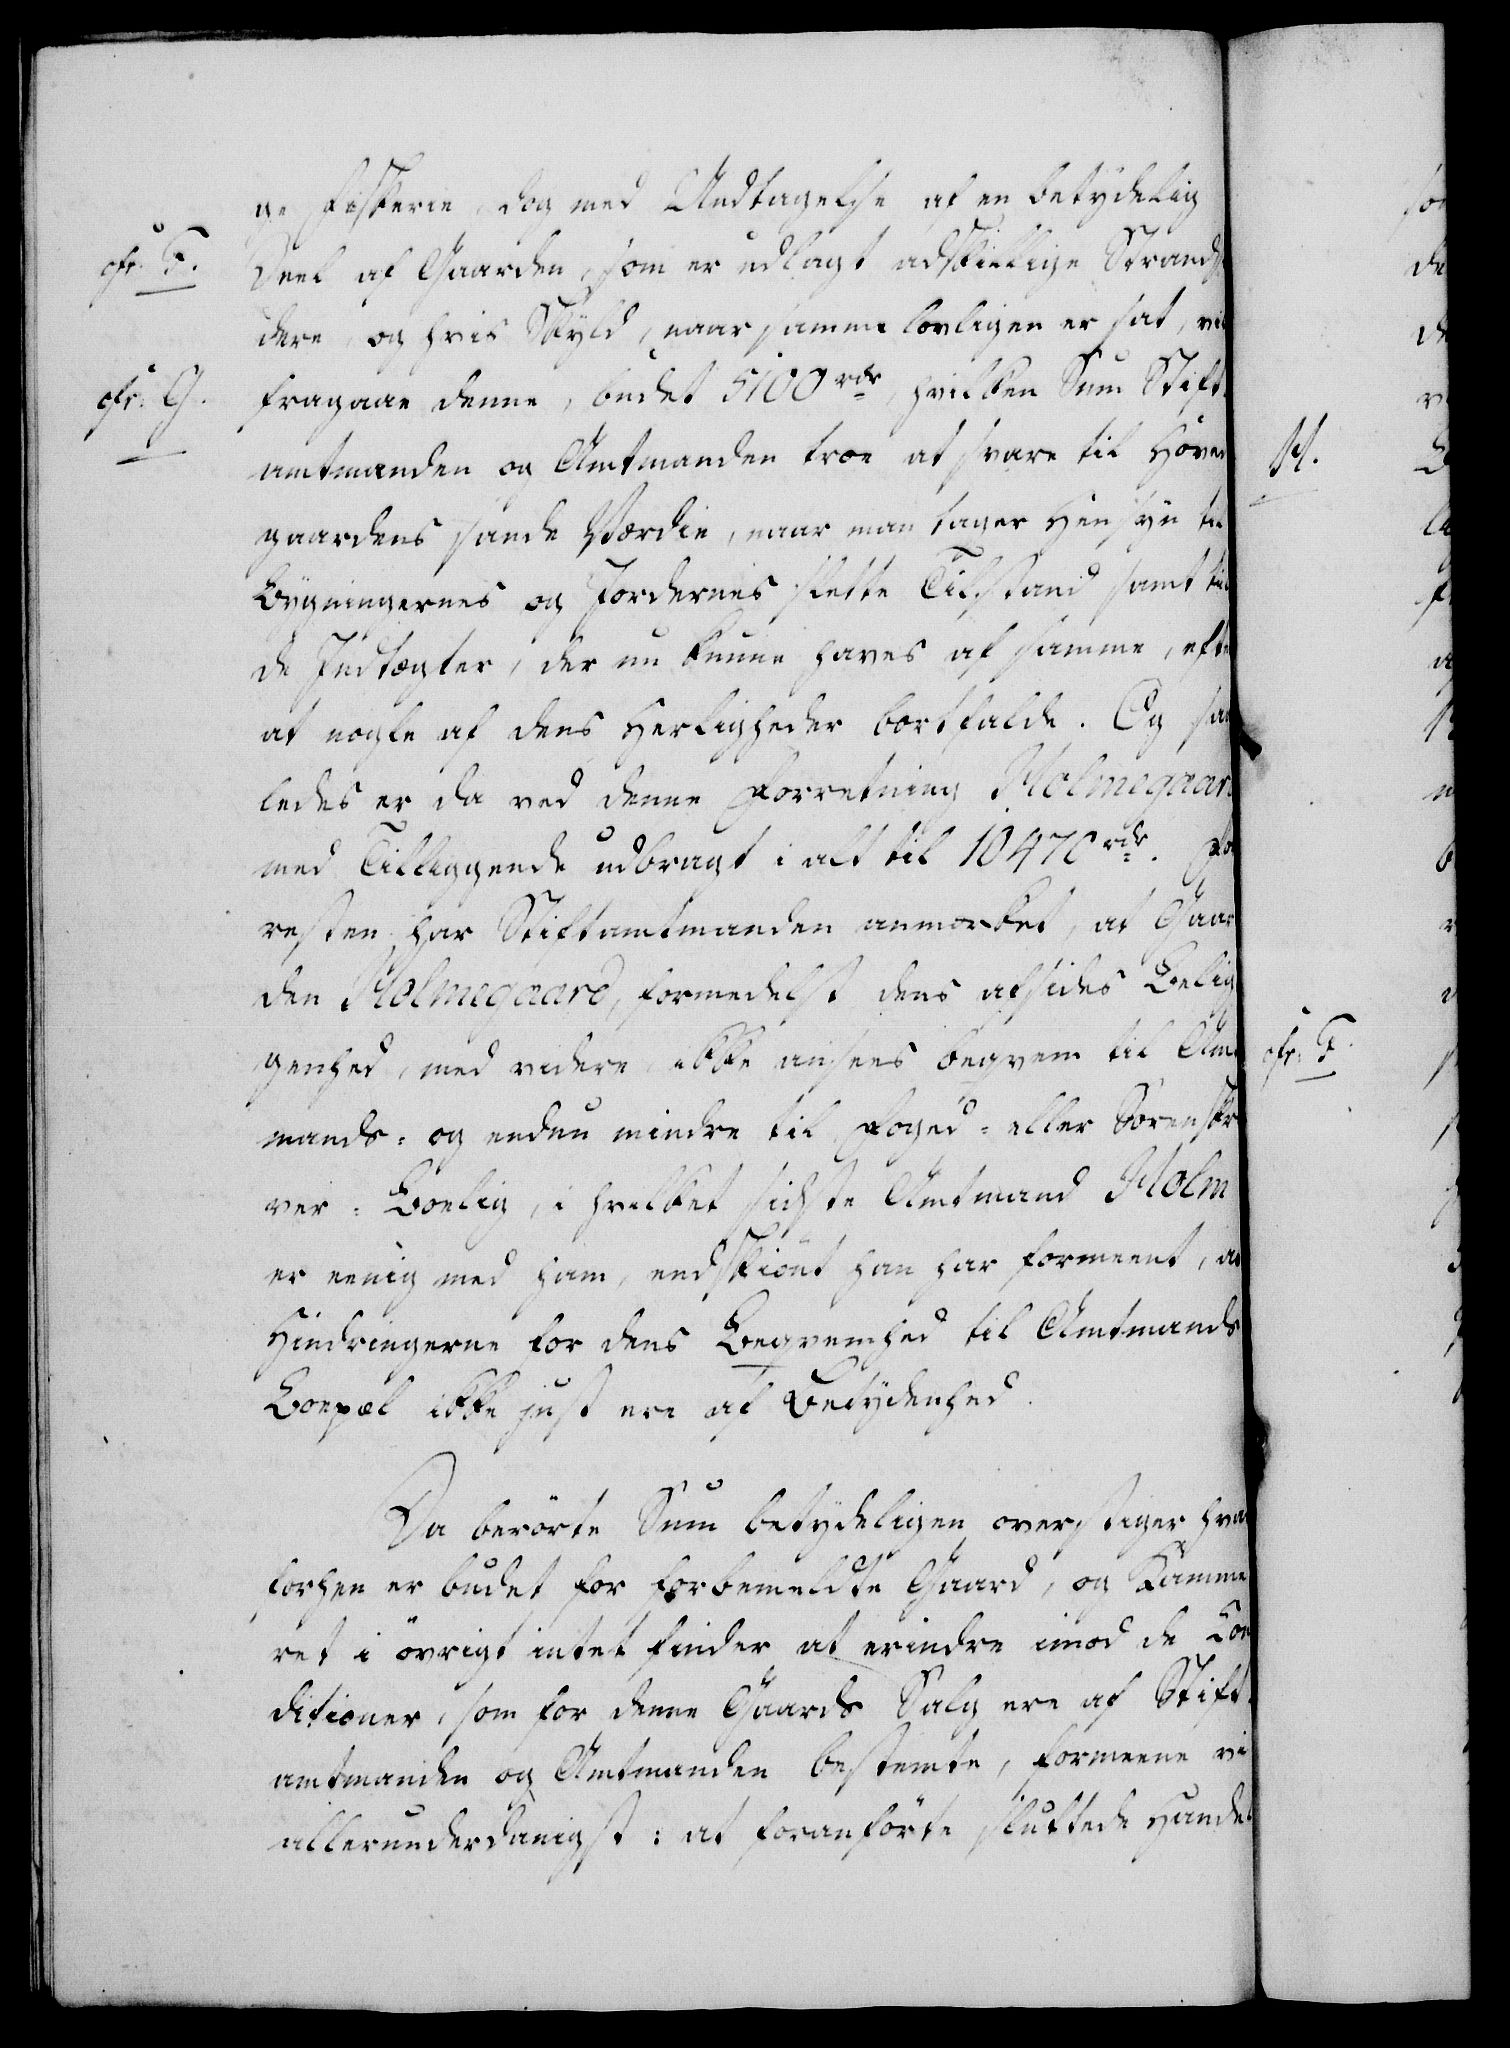 ge Fiskerie, dog med Undtagelse af en betydelig
cfr. F. Deel af Gaarden, som er udlagt adskillige Strandsi
dere, og hvis Skyld, naar samme lovligen er sat, vil
cfr. G. fragaae denne, budet 5100 rdr, hvilken Sum Stift-
amtmanden og Amtmanden troe at svare til Hoved
gaardens sande Værdie, naar man tager Hensyn til
Bygningernes og Jordernes slette Tilstand samt til
de Indtægter, der nu kunne haves af samme, efter
at nogle af dens Herligheder bortfalde. Og saa
ledes er da ved denne Forretning Holmegaard
med Tilliggende udbragt i alt til 10470 rdr. For
resten har Stiftamtmanden anmærket, at Gaar
den Holmegaard, formedelst dens afsides Belig
genhed, med videre, ikke ansees beqvem til Amt
mands- og endnu mindre til Foged- eller Sorenskri
ver-Boelig, i hvilket sidste Amtmand Holm
er eenig med ham, endskiønt han har formeent, at
Hindringerne for dens Beqvemhed til Amtmands
Boepæl ikke just ere af Betydenhed.
Da berørte Sum betydeligen overstiger hvad
forhen er budet for forbemeldte Gaard, og Kamme
ret i øvrigt intet finder at erindre imod de Con
ditioner, som for denne Gaards Salg ere af Stift-
amtmanden og Amtmanden bestemte, formeene vi
allerunderdanigst: at foranførte sluttede Handel
H.
cfr. F.